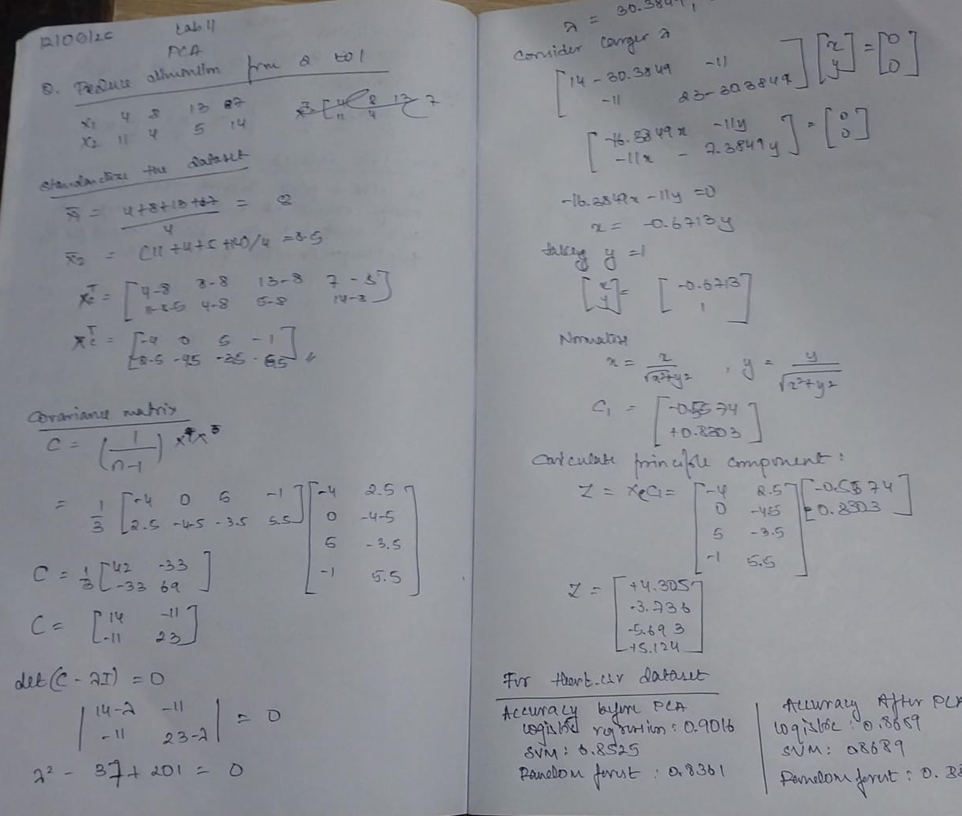 Lab 11
PCA
Q. Reduce dimention from 2 to 1
x1 4 8 13 7
x2 11 4 5 14
Standardize the dataset
x̄ = 4+8+13+7 / 4 = 8
x̄2 = (11+4+5+14)/4 = 8.5
xcᵀ = [4-8 8-8 13-8 7-8]
[11-8.5 4-8 5-8 14-8]
xcᵀ = [-4 0 5 -1]
[2.5 -4.5 -3.5 5.5]
Covariance matrix
C = (1/n-1)
= 1/3 [-4 0 5 -1] [-4 2.5]
[2.5 -4.5 -3.5 5.5] [0 -4.5]
[5 -3.5]
[-1 5.5]
C = 1/3 [42 -33]
[-33 69]
C = [14 -11]
[-11 23]
det(C - λI) = 0
|14-λ -11|
|-11 23-λ| = 0
λ² - 37 + 201 = 0
λ = 30.3849,
Consider larger λ
[14-30.3849 -11] [x] = [0]
[-11 23-30.3849] [y] [0]
[-16.3849x -11y] = [0]
[-11x - 7.3849y] [0]
-16.3849x - 11y = 0
x = -0.6713y
taking y = 1
[x] = [-0.6713]
[y] [1]
Normalise
x = x/√x²+y² , y = y/√x²+y²
C1 = [-0.5574]
[+0.8303]
Calculate principle component:
Z = XcC1 = [-4 2.5] [-0.5574]
[0 -4.5] [0.8303]
[5 -3.5]
[-1 5.5]
Z = [+4.305]
[-3.736]
[-5.693]
[+5.124]
For heart.csv dataset
Accuracy before PCA
logistic regression : 0.9016
SVM : 0.8525
Random forest : 0.8361
Accuracy After PCA
logistic : 0.8689
SVM : 0.8689
Random forest : 0.